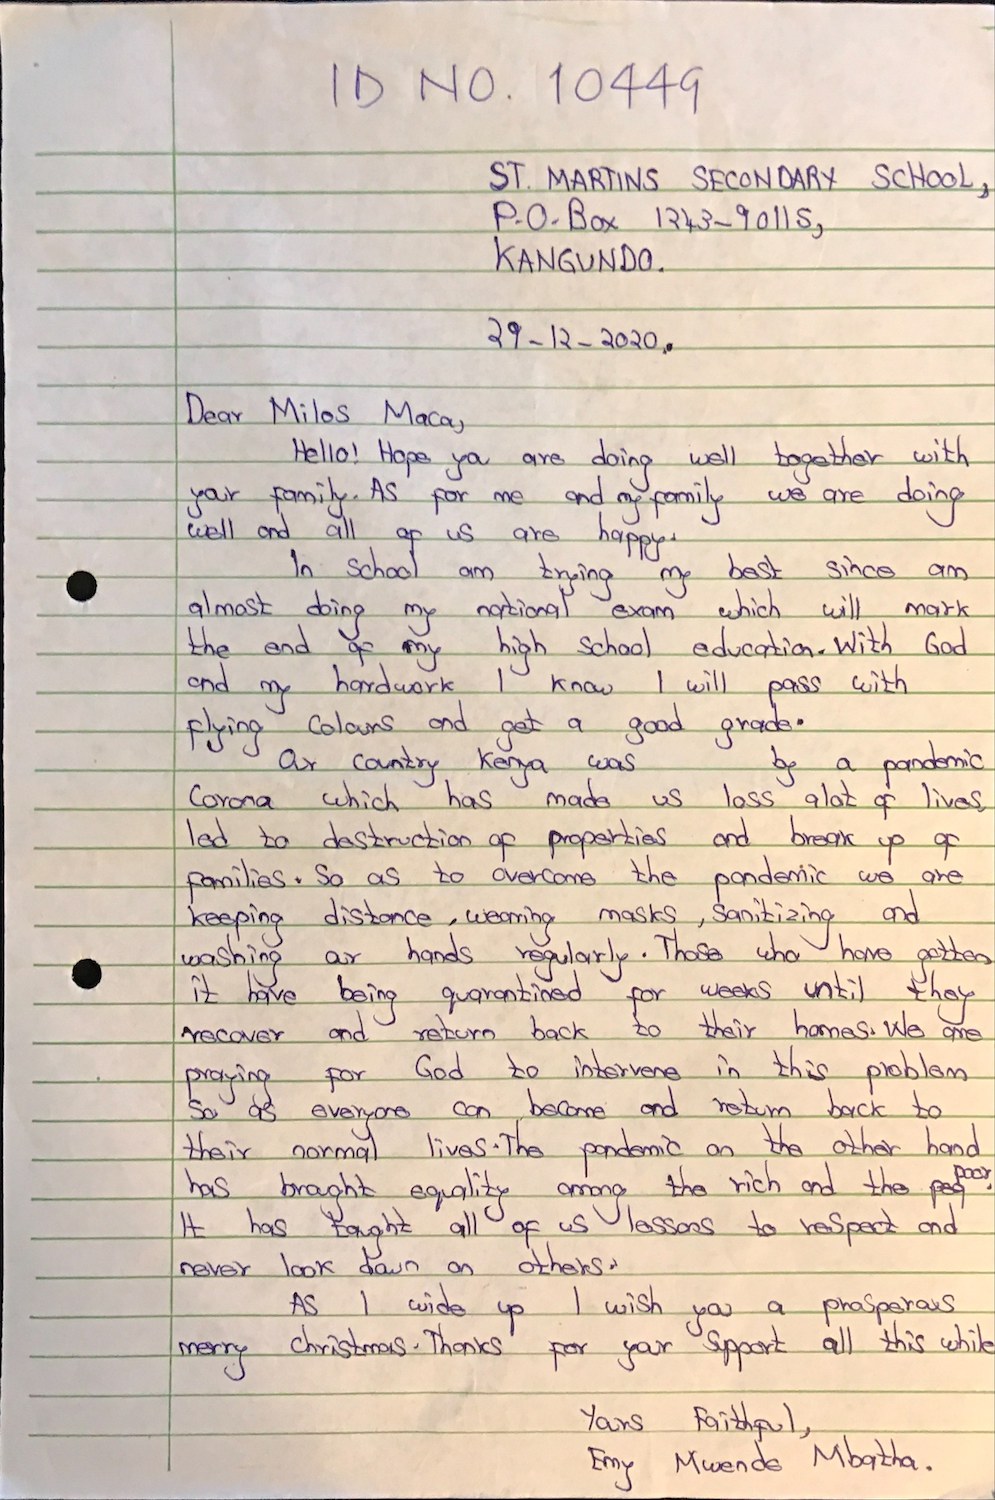 ID NO. 10449
ST. MARTINS SECONDARY SCHOOL,
P.O. Box 1243-90115,
KANGUNDO.
29-12-2020.
Dear Milos Maca,
Hello! Hope you are doing well together with
your family. As for me and my family we are doing
well and all of us are happy.
In school am trying my best since am
almost doing my national exam which will mark
the end of my high school education. With God
and my hardwork I know I will pass with
flying colours and get a good grade.
Our country Kenya was by a pandemic
Corona which has made us loss alot of lives,
led to destruction of properties and break up of
families. So as to overcome the pandemic we are
keeping distance, wearing masks, sanitizing and
washing our hands regularly. Those who have gotten
it have being quarantined for weeks until they
recover and return back to their homes. We are
praying for God to intervene in this problem
so as everyone can become and return back to
their normal lives. The pandemic on the other hand
has brought equality among the rich and the poor.
It has taught all of us lessons to respect and
never look down on others.
As I wide up I wish you a phosperous
merry christmas. Thanks for your spport all this while
Yours Faithful,
Emy Mwende Mbatha.